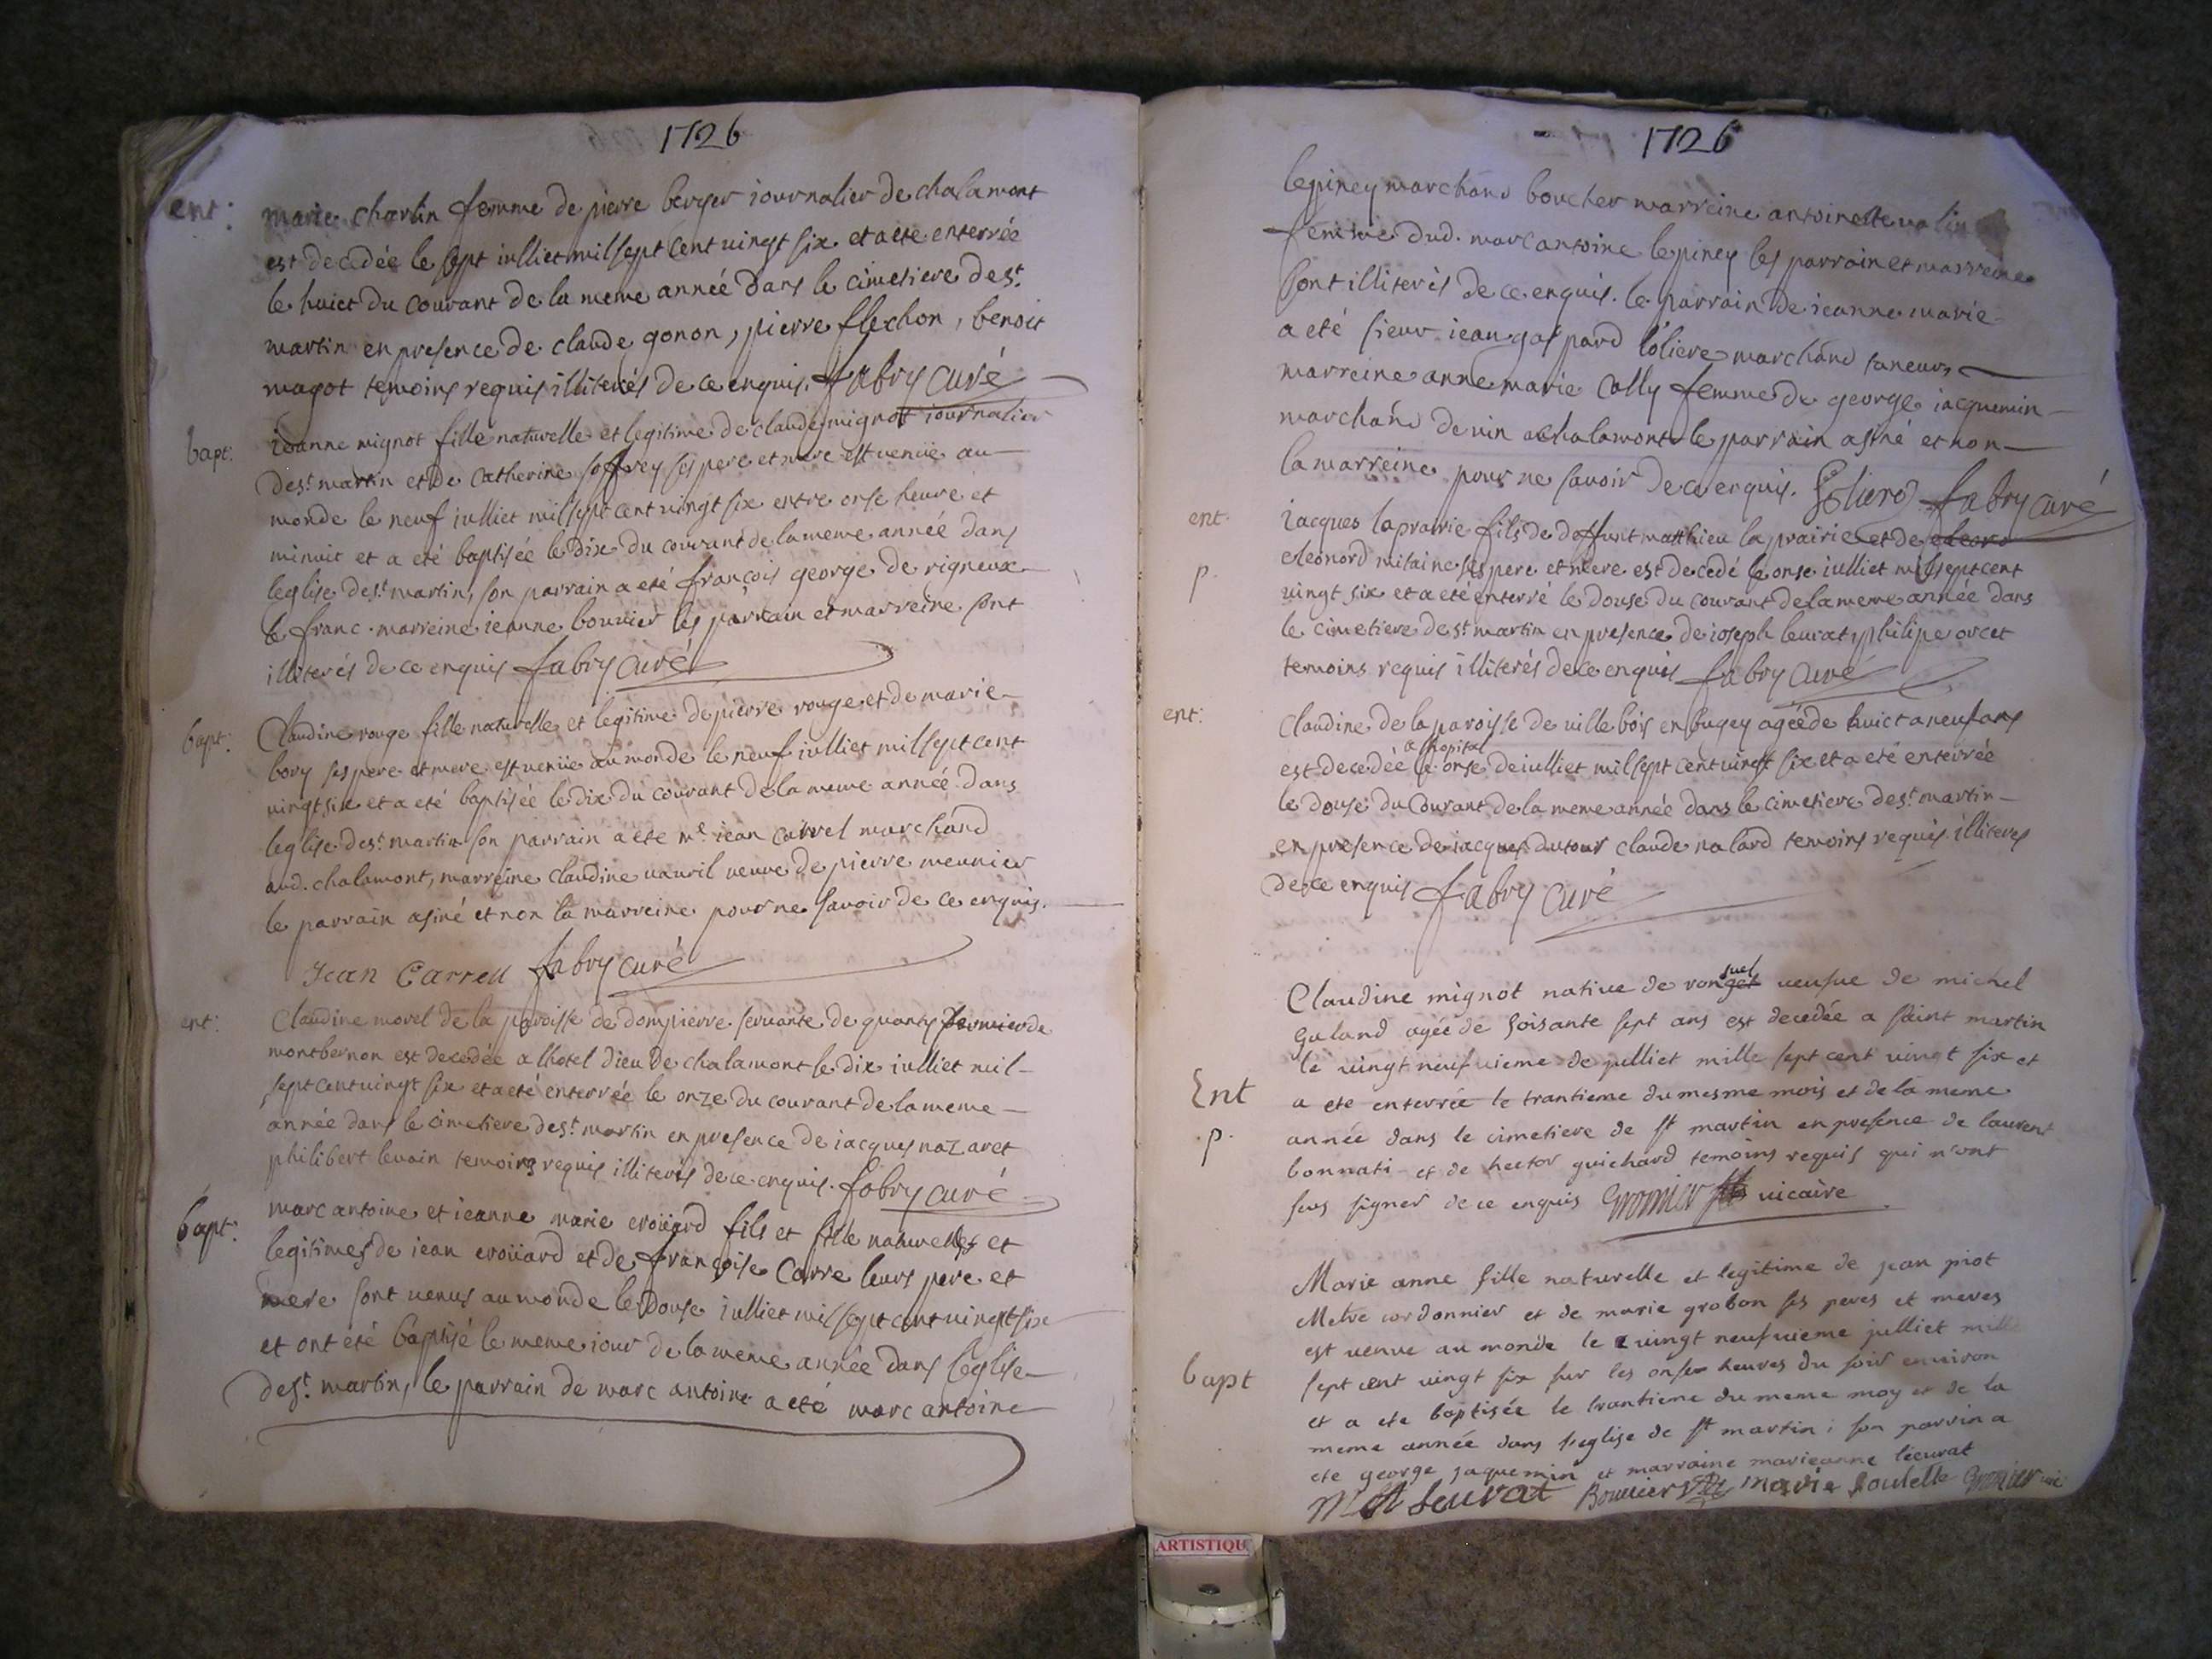 1726
ent:
marie charlin femme de pierre berger iournalier de chalamont
est decedée le sept iulliet mil sept cent vingt six et a eté enterrée
le huict du courant de la meme année dans le cimetiere de st.
martin en presence de claude gonon, pierre flechon, benoit
magot temoins requis illiterés de ce enquis. fabry curé
bapt:
ieanne mignot fille naturelle et legitime de claude mignot iournalier
de st. martin et de catherine soffrey ses pere et mere est venüe au
monde le neuf iulliet mil sept cent vingt six entre onse heure et
minuit et a eté baptisée le dix du courant de la meme année dans
leglise de st. martin, son parrain a eté françois george de rigneux
le franc. marreine ieanne bouvier les parrain et marreine sont
illiterés de ce enquis fabry curé
bapt:
Claudine rouge fille naturelle et legitime de pierre rouge et de marie
bory ses pere et mere est venüe au monde le neuf iulliet mil sept cent
vingt six et a eté baptisée le dix du courant de la meme année dans
leglise de st. martin son parrain a eté me. iean carrel marchand
aud. chalamont, marreine claudine vauril veuve de pierre meunier
le parrain asiné et non la marreine pour ne savoir de ce enquis.
Jean Carrell fabry curé
ent:
Claudine morel de la paroisse de dompierre servante de quanty fermier de
montbernon est decedée a lhotel dieu de chalamont le dix iulliet mil
sept cent vingt six et a eté enterrée le onze du courant de la meme
année dans le cimetiere de st. martin en presence de iacques nazaret
philibert levain temoins requis illiterés de ce enquis. fabry curé
bapt:
marc antoine et ieanne marie eroüard fils et fille naturelles et
legitimes de iean eroüard et de françoise Carre leurs pere et
mere sont venus au monde le douse iulliet mil sept cent vingt six
et ont eté baptisé le meme iour de la meme année dans leglise
de st. martin, le parrain de marc antoine a eté marc antoine
1726
lepiney marchand boucher marreine antoinette
femme dud. marc antoine lepiney les parrain et marreine
sont illiterés de ce enquis. le parrain de ieanne marie
a eté sieur iean gaspard loliere marchand taneur,
marreine anne marie Colly femme de george iacquemin
marchand de vin a chalamont le parrain asiné et non
la marreine pour ne savoir de ce enquis. fabry curé
ent.
p.
iacques laprairie fils de deffunt matthieu laprairie et de eleono
eleonord mitaine ses pere et mere est decedé le onse iulliet mil sept cent
vingt six et a eté enterré le douse du courant de la meme année dans
le cimetiere de st. martin en presence de ioseph leurat, philipe orcet
temoins requis illiterés de ce enquis fabry curé
ent:
Claudine de la paroisse de ville bois en bugey agée de huict a neuf ans
a lhopital
est decedée le onse de iulliet mil sept cent vingt six et a eté enterrée
le douse du courant de la meme année dans le cimetiere de st. martin
en presence de iacques dutour claude nalard temoins requis illiterés
de ce enquis fabry curé
suel
Claudine mignot native de ronget veufue de michel
galand agée de soisante sept ans est decedée a saint martin
le vingt neufvieme de julliet mille sept cent vingt six et
Ent
p.
a ete enterrée le trantieme du mesme mois et de la meme
année dans le cimetiere de st martin en presence de laurent
bonnati et de hector guichard temoins requis qui n'ont
sus signer de ce enquis Gromier vicaire
Marie anne fille naturelle et legitime de jean piot
Metre cordonnier et de marie grobon ses peres et meres
est venue au monde le vingt neufvieme julliet mille
bapt
sept cent vingt six sur les onse heures du soir environ
et a ete baptisée le trantieme du meme moy et de la
meme année dans l'eglise de st martin; son parrin a
ete george jaquemin et marraine marieanne lieurat
leurat Bouvier marie Gromier vic
ARTISTIQU